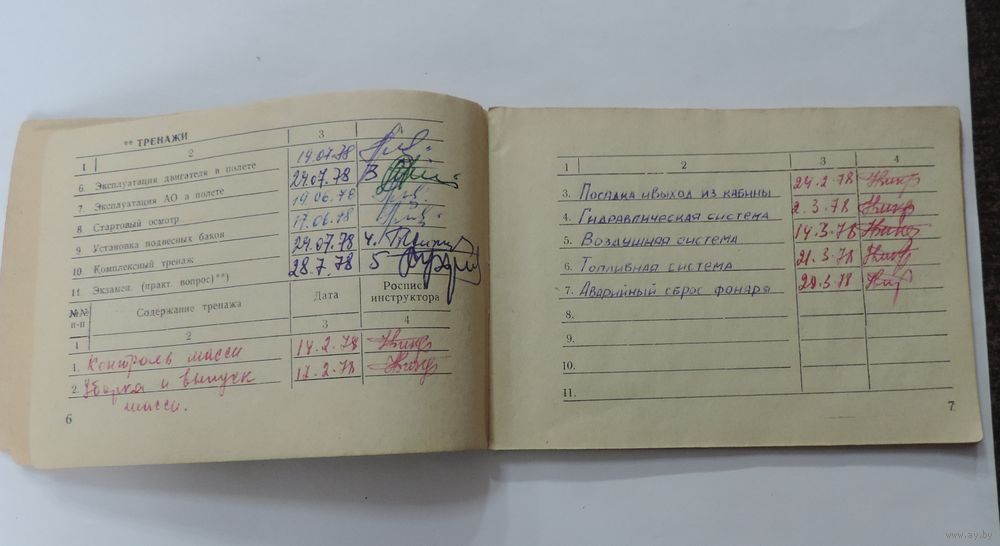 ** ТРЕНАЖИ
1 2 3 4
6. Эксплуатация двигателя в полете 14.07.78
7. Эксплуатация АО а полете 24.07.78
8 Стартовый осмотр 19.06.78
9 Установка подвесных баков 17.06.78
10 Комплексный тренаж 24.07.78 4.
11 Экзамен. (практ. вопрос)**) 28.7.78 5
№№ п-п Содержание тренажа Дата Роспись инструктора
1 2 3 4
1. Контроль масси 14.2.78
2. Уборка и выпуск 17.2.78
масси.
6
1 2 3 4
3. Посадка и выход из кабины 24.2.78
4. Гидравлическая система 2.3.78
5. Воздушная система 14.3.78
6. Топливная система 21.3.78
7. Аварийный сброс фонаря 29.3.78
8.
9.
10.
11.
7
www.ay.by